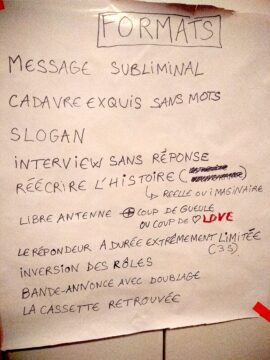 FORMATS
MESSAGE SUBLIMINAL
CADAVRE EXQUIS SANS MOTS
SLOGAN
INTERVIEW SANS RÉPONSE
RÉÉCRIRE L'HISTOIRE (
↳ RÉELLE OU IMAGINAIRE
LIBRE ANTENNE ⊕ COUP DE GUEULE
OU COUP DE ♡ LOVE
LE RÉPONDEUR A DURÉE EXTRÊMEMENT LIMITÉE
(3S)
INVERSION DES RÔLES
BANDE-ANNONCE AVEC DOUBLAGE
LA CASSETTE RETROUVÉE